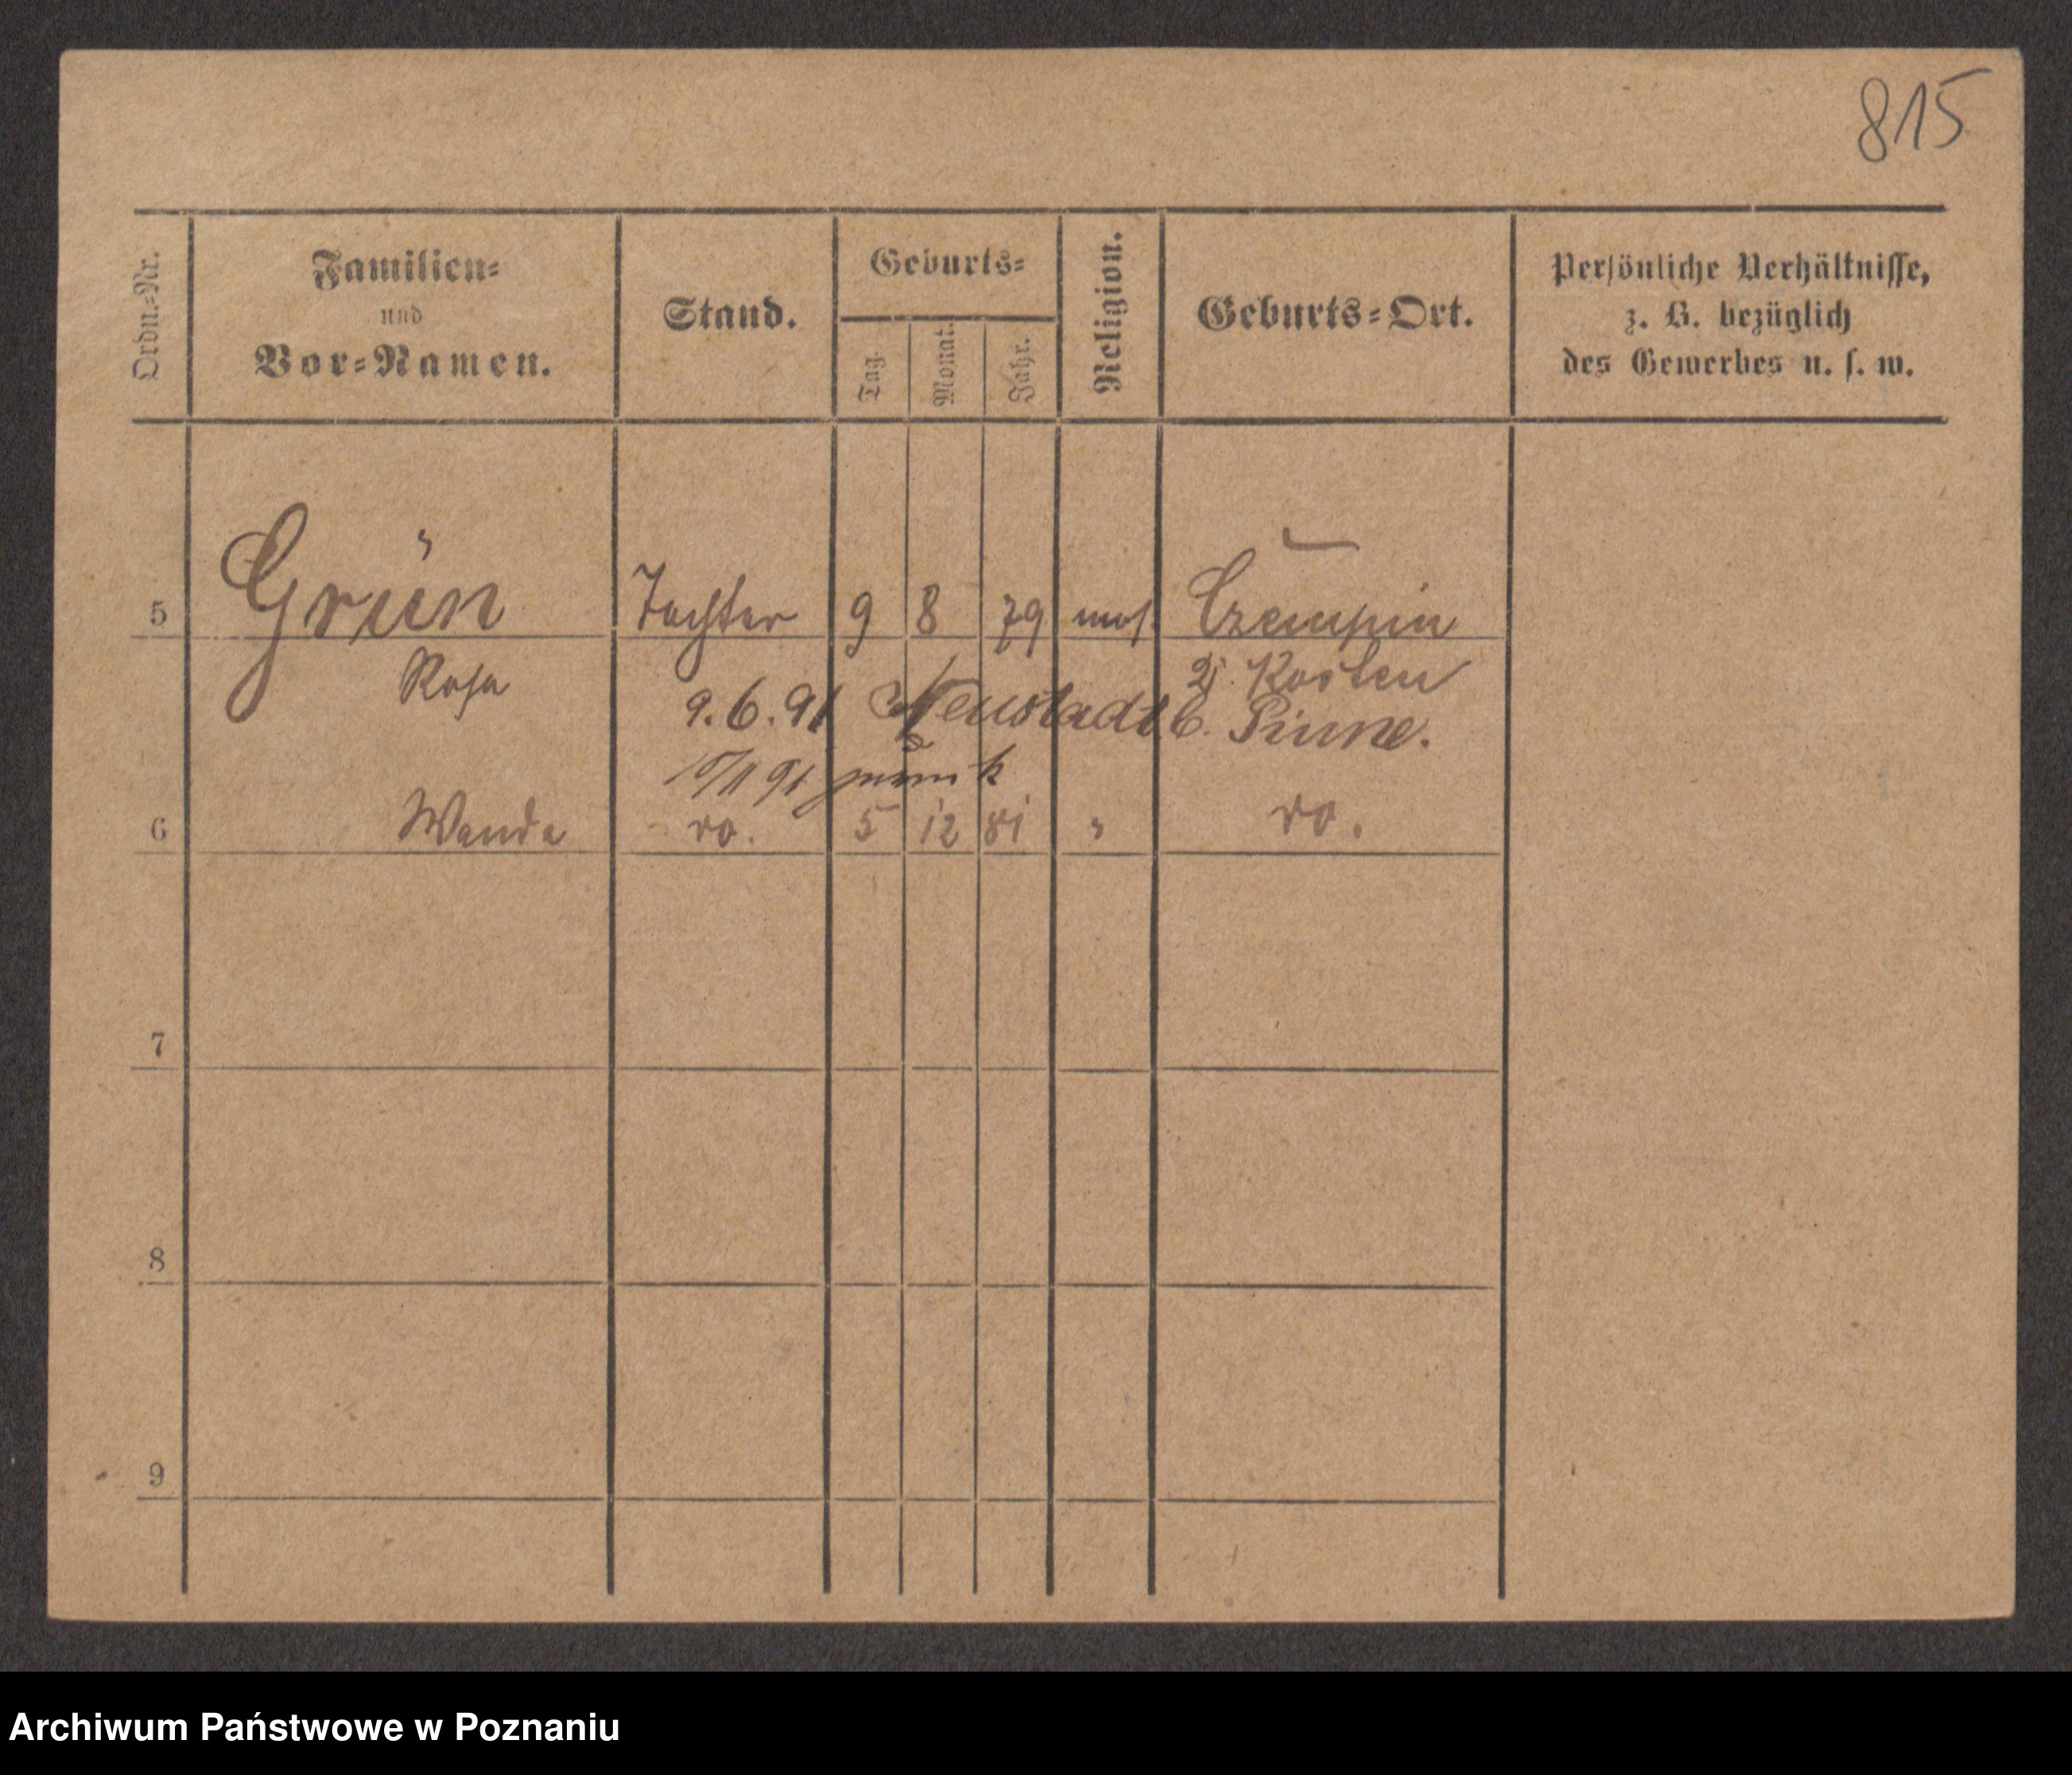 815
Ordn.-Nr.
Familien-
und
Vor-Namen.
Stand.
Geburts-
Tag.
Monat.
Jahr.
Religion.
Geburts-Ort.
Persönliche Verhältnisse,
z. B. bezüglich
des Gewerbes u. s. w.
5 Grün Tochter 9 8 79 mos. Czempin
Rosa Kosten
9.6.91 Neustadt b. Pinne.
91 zurück
6 Wanda do. 5 12 81 " do.
7
8
9
Archiwum Państwowe w Poznaniu